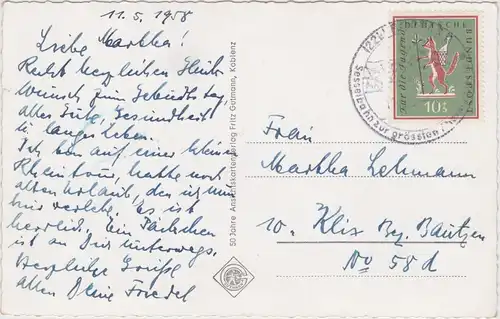 11.5.1958
Liebe Martha!
Recht herzlichen Glück-
Wunsch zum Geburtstag,
alles Gute, Gesundheit
u. langes Leben.
Ich bin auf einer kleinen
Rheintour, hatte noch
alten Urlaub, den ich nun
hier verlebe. Es ist
herrlich. Ein Päckchen
ist an Dich unterwegs.
Herzliche Grüße
allen Deine Friedel
50 Jahre Ansichtskartenverlag Fritz Gutmann, Koblenz
Sesselbahn zur grössten
DEUTSCHE
BUNDESPOST
Für die Jugend
10+5
Frau
Martha Lehmann
10. Klix Bez. Bautzen
No 58d